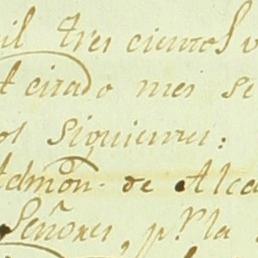 il trescientos v
citado mes se
os siguientes:
Admõn. de Alca
Señores, p.r la